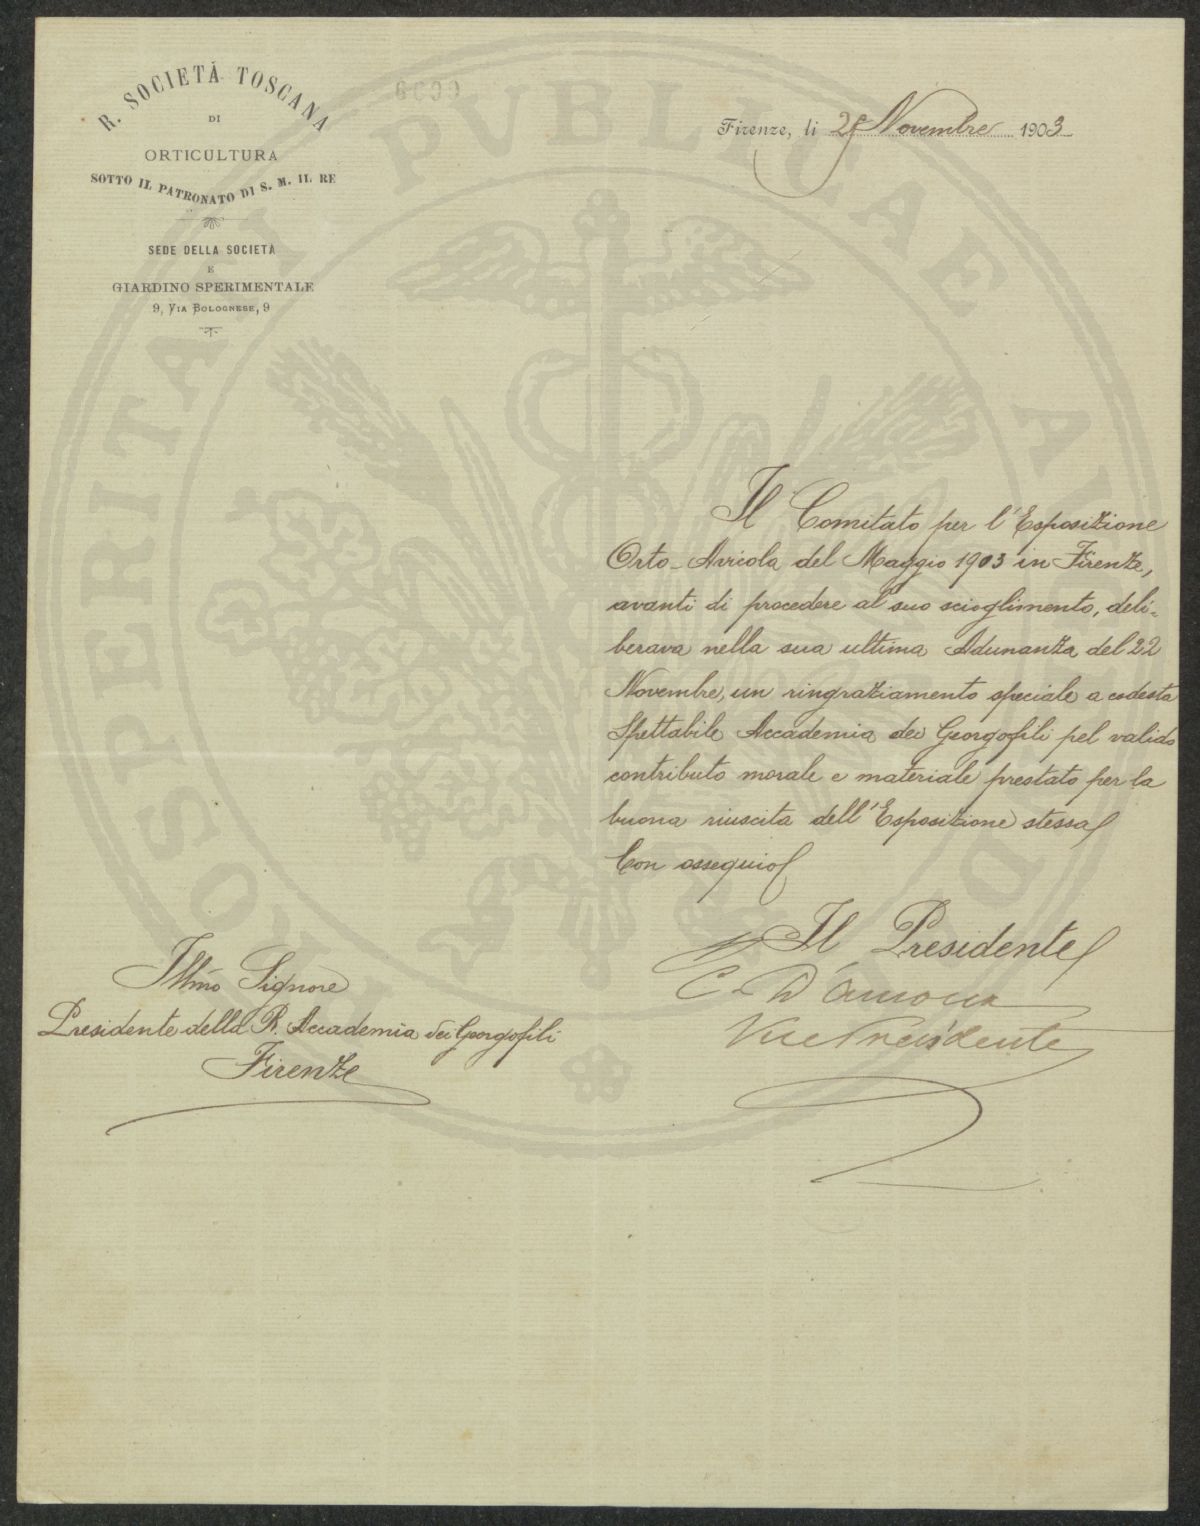 R. SOCIETÀ TOSCANA
DI
ORTICULTURA
SOTTO IL PATRONATO DI S. M. IL RE
SEDE DELLA SOCIETÀ
E
GIARDINO SPERIMENTALE
9, VIA BOLOGNESE, 9
Firenze, li Novembre 1903
Il Comitato per l'Esposizione
Orto-Avicola del Maggio 1903 in Firenze,
avanti di procedere al suo scioglimento, deli=
berava nella sua ultima Adunanza del 22
Novembre, un ringraziamento speciale a codesta
Spettabile Accademia dei Georgofili pel valido
contributo morale e materiale prestato per la
buona riuscita dell'Esposizione stessa
Con ossequio
Il Presidente
C. D'Ancona
Vice Presidente
Illmo Signore
Presidente della R. Accademia dei Georgofili
Firenze
PROSPERITATI PVBLICAE AVGENDAE